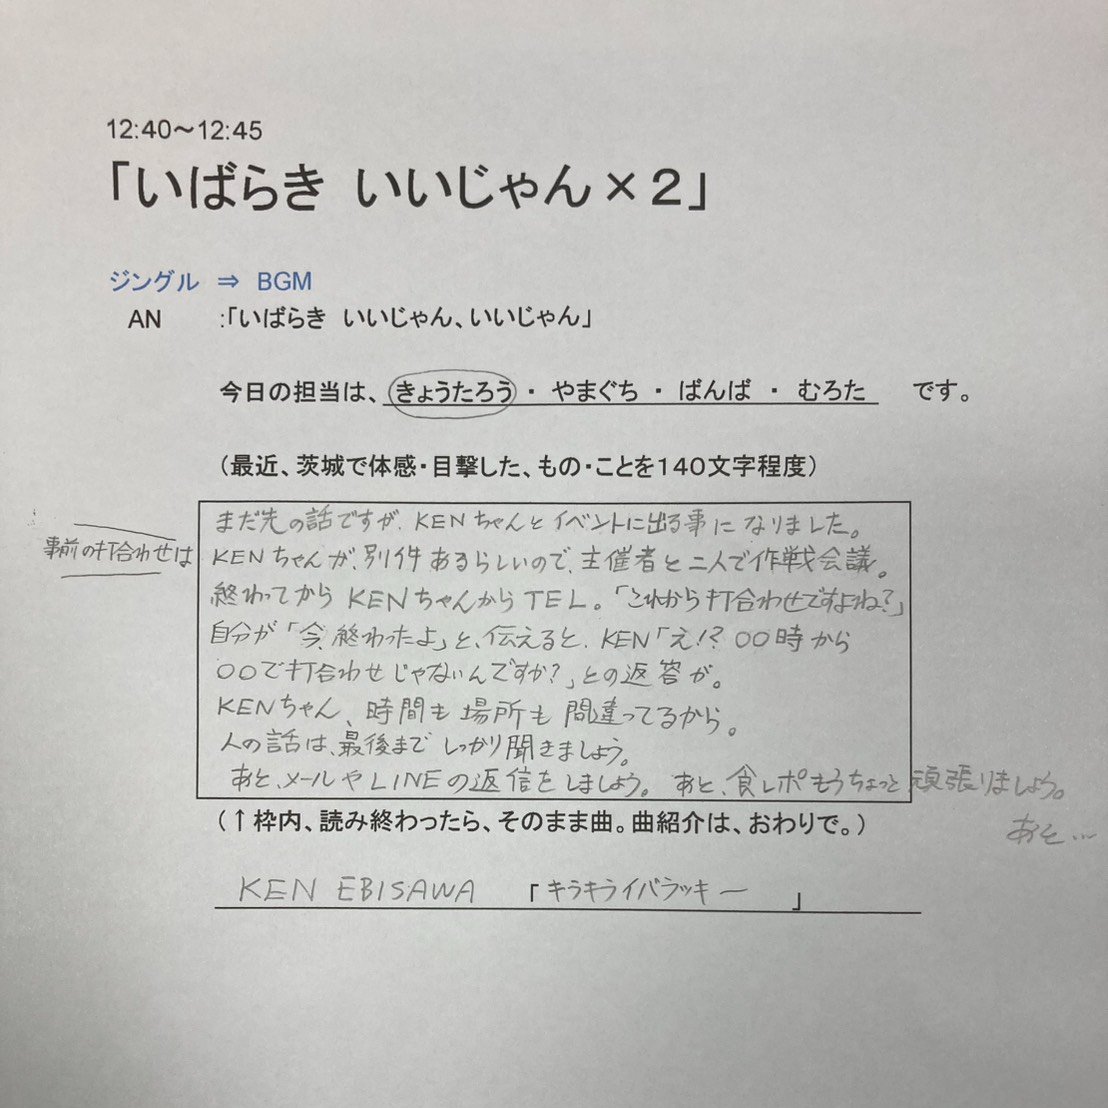 12:40～12:45
「いばらき いいじゃん×2」
ジングル ⇒ BGM
AN :「いばらき いいじゃん、いいじゃん」
今日の担当は、きょうたろう ・ やまぐち ・ ばんば ・ むろた です。
（最近、茨城で体感・目撃した、もの・ことを140文字程度）
まだ先の話ですが、KENちゃんとイベントに出る事になりました。
事前の打合わせは
KENちゃんが、別件あるらしいので、主催者と二人で作戦会議。
終わってからKENちゃんからTEL。「これから打合わせですよね？」
自分が「今、終わったよ」と、伝えると、KEN「え！？〇〇時から
〇〇で打合わせじゃないんですか？」との返答が。
KENちゃん、時間も場所も間違ってるから。
人の話は、最後までしっかり聞きましょう。
あと、メールやLINEの返信をしましょう。あと、食レポもうちょっと頑張りましょう。
（↑枠内、読み終わったら、そのまま曲。曲紹介は、おわりで。）
あと…
KEN EBISAWA 「キラキライバラッキー」